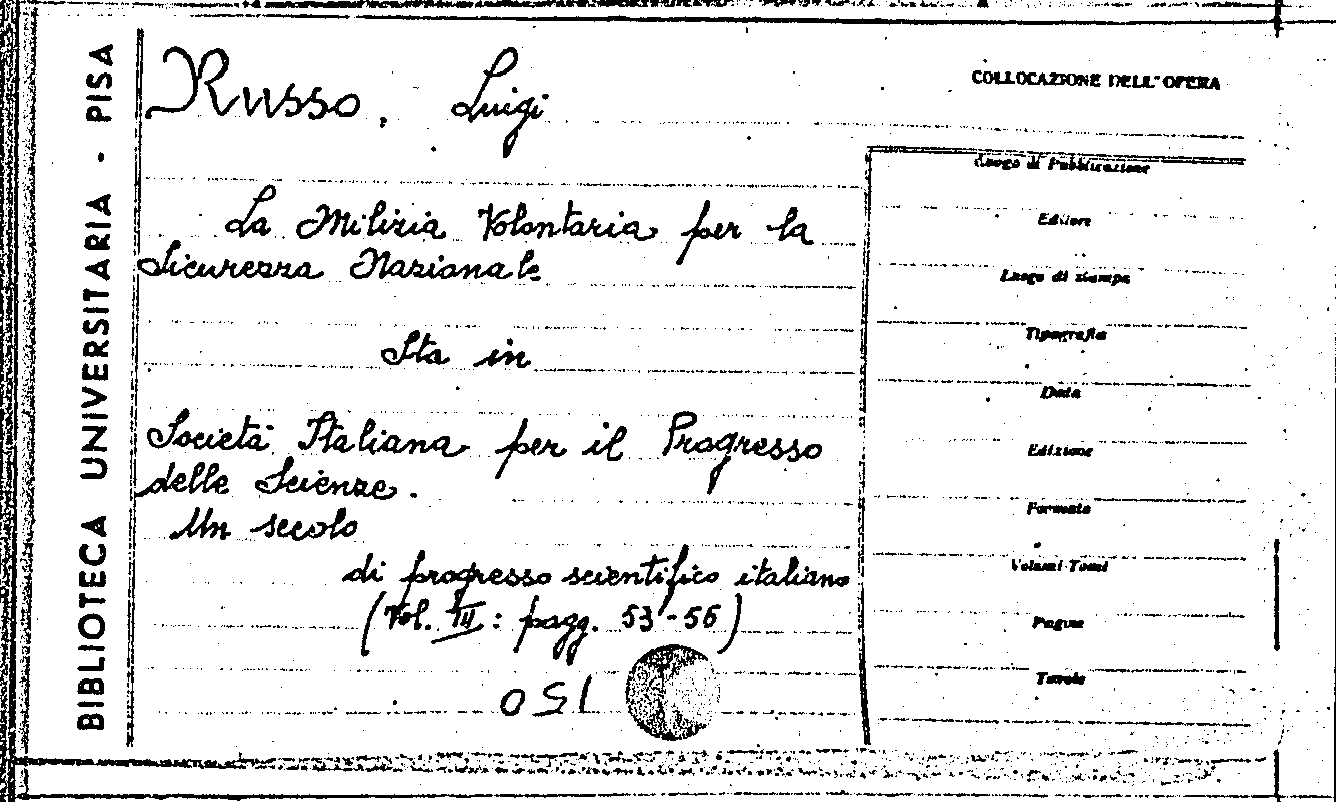 BIBLIOTECA UNIVERSITARIA - PISA
Russo, Luigi
COLLOCAZIONE DELL'OPERA
La Milizia Volontaria per la
Sicurezza Nazionale
Sta in
Società Italiana per il Progresso
delle Scienze.
Un secolo
di progresso scientifico italiano
(Vol. III: pagg. 53-56)
051
Luogo di Pubblicazione
Editore
Luogo di stampa
Tipografia
Data
Edizione
Formato
Volumi-Tomi
Pagine
Tavole